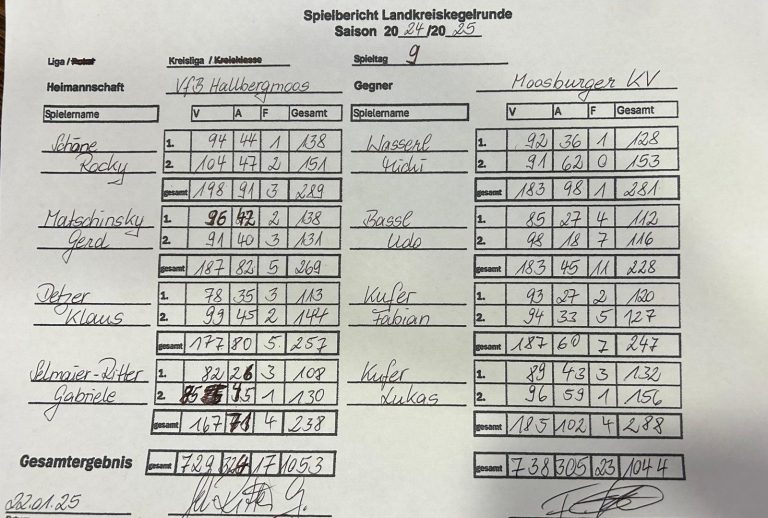 Spielbericht Landkreiskegelrunde
Saison 20 24 /20 25
Liga / Pokal Kreisliga / Kreisklasse Spieltag 9
Heimmannschaft VfB Hallbergmoos Gegner Moosburger KV
Spielername V A F Gesamt Spielername V A F Gesamt
1. 94 44 1 138 Wasserl 1. 92 36 1 128
Rocky 2. 104 47 2 151 Michi 2. 91 62 0 153
gesamt 198 91 3 289 gesamt 183 98 1 281
Matschinsky 1. 96 42 2 138 Bassl 1. 85 27 4 112
Gerd 2. 91 40 3 131 Udo 2. 98 18 7 116
gesamt 187 82 5 269 gesamt 183 45 11 228
1. 78 35 3 113 Kufer 1. 93 27 2 120
Klaus 2. 99 45 2 144 Fabian 2. 94 33 5 127
gesamt 177 80 5 257 gesamt 187 60 7 247
Selmaier-Ritter 1. 82 26 3 108 Kufer 1. 89 43 3 132
Gabriele 2. 85 45 1 130 Lukas 2. 96 59 1 156
gesamt 167 71 4 238 gesamt 185 102 4 288
Gesamtergebnis gesamt 729 324 17 1053 gesamt 738 305 23 1044
22.01.25